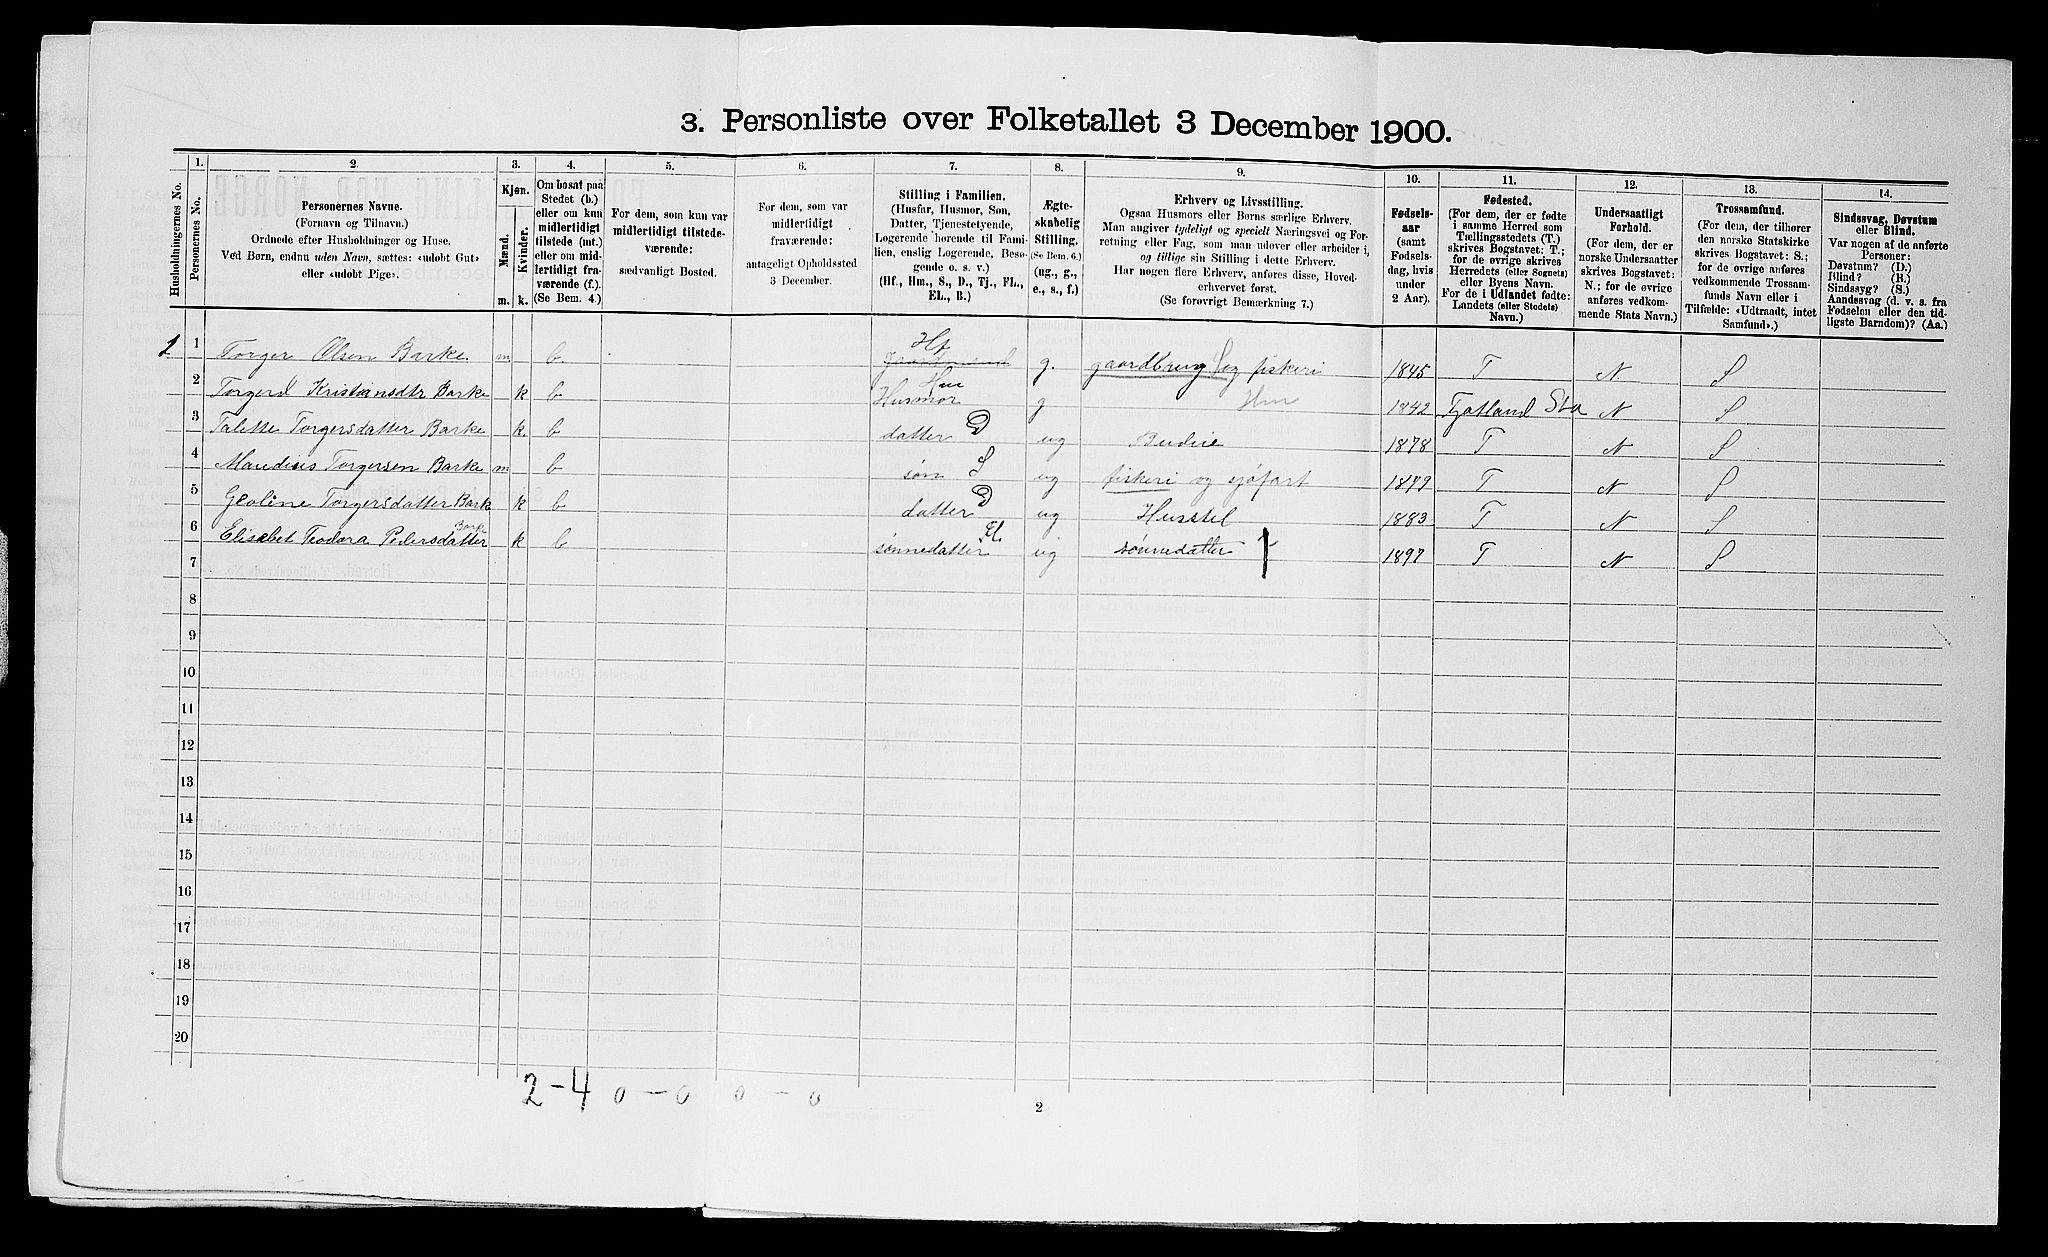 3. Personliste over Folketallet 3 December 1900.
Husholdningernes No.
1.
Personernes No.
2.
Personernes Navne.
(Fornavn og Tilnavn.)
Ordnede efter Husholdninger og Huse.
Ved Børn, endnu uden Navn, sættes: «udøbt Gut»
eller «udøbt Pige».
3.
Kjøn.
Mænd.
Kvinder.
m. k.
4.
Om bosat paa
Stedet (b.)
eller om kun
midlertidigt
tilstede (mt.)
eller om mid-
lertidigt fra-
værende (f.).
(Se Bem. 4.)
5.
For dem, som kun var
midlertidigt tilstede-
værende:
sædvanligt Bosted.
6.
For dem, som var
midlertidigt
fraværende:
antageligt Opholdssted
3 December.
7.
Stilling i Familien.
(Husfar, Husmor, Søn,
Datter, Tjenestetyende,
Logerende hørende til Fami-
lien, enslig Logerende, Besø-
gende o. s. v.)
(Hf., Hm., S., D., Tj., FL.,
EL., B.)
8.
Ægte-
skabelig
Stilling.
(Se Bem. 6.)
(ug., g.,
e., s., f.)
9.
Erhverv og Livsstilling.
Ogsaa Husmors eller Børns særlige Erhverv.
Man angiver tydeligt og specielt Næringsvei og For-
retning eller Fag, som man udøver eller arbeider i,
og tillige sin Stilling i dette Erhverv.
Har nogen flere Erhverv, anføres disse, Hoved-
erhvervet først.
(Se forøvrigt Bemærkning 7.)
10.
Fødsels-
aar
(samt
Fødsels-
dag, hvis
under
2 Aar).
11.
Fødested.
(For dem, der er fødte
i samme Herred som
Tællingsstedets (T.)
skrives Bogstavet: T.;
for de øvrige skrives
Herredets (eller Sognets)
eller Byens Navn.
For de i Udlandet fødte:
Landets (eller Stedets)
Navn.)
12.
Undersaatligt
Forhold.
(For dem, der er
norske Undersaatter
skrives Bogstavet:
N.; for de øvrige
anføres vedkom-
mende Stats Navn.)
13.
Trossamfund.
(For dem, der tilhører
den norske Statskirke
skrives Bogstavet: S.;
for de øvrige anføres
vedkommende Trossam-
funds Navn eller i
Tilfælde: «Udtraadt, intet
Samfund».)
14.
Sindssvag, Døvstum
eller Blind.
Var nogen af de anførte
Personer:
Døvstum? (D.)
Blind? (B.)
Sindssyg? (S.)
Aandssvag (d. v. s. fra
Fødselen eller den tid-
ligste Barndom)? (Aa.)
1 1 Torger Olsen Barke m b Hf g. gaardbrug og fiskeri 1845 T N S
2 Torgerd Kristiansdtr Barke k b Husmor Hm g Hm 1842 Fjotland Sta N S
3 Talette Torgersdatter Barke k. b datter D ug Budeie 1878 T N S
4 Maudius Torgersen Barke m b søn S ug fiskeri og sjøfart 1879 T N S
5 Geoline Torgersdatter Barke k b datter D ug Husstel 1883 T N S
6 Elisabet Teodora Pedersdatter Barke k b sønnedatter Fl. ug sønnedatter 1897 T N S
7
8
9
10
11
12
13
14
15
16
17
18
19
20
2-4 0-0 0-0
2